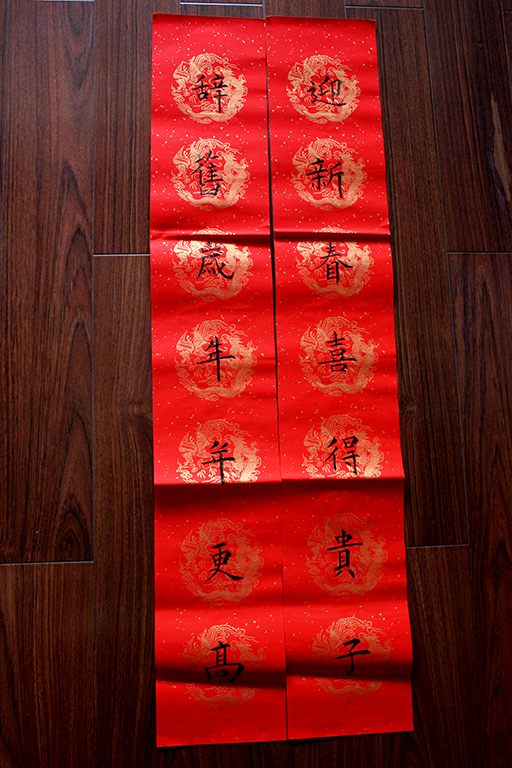 迎新春喜得貴子
辞舊歲年年更高